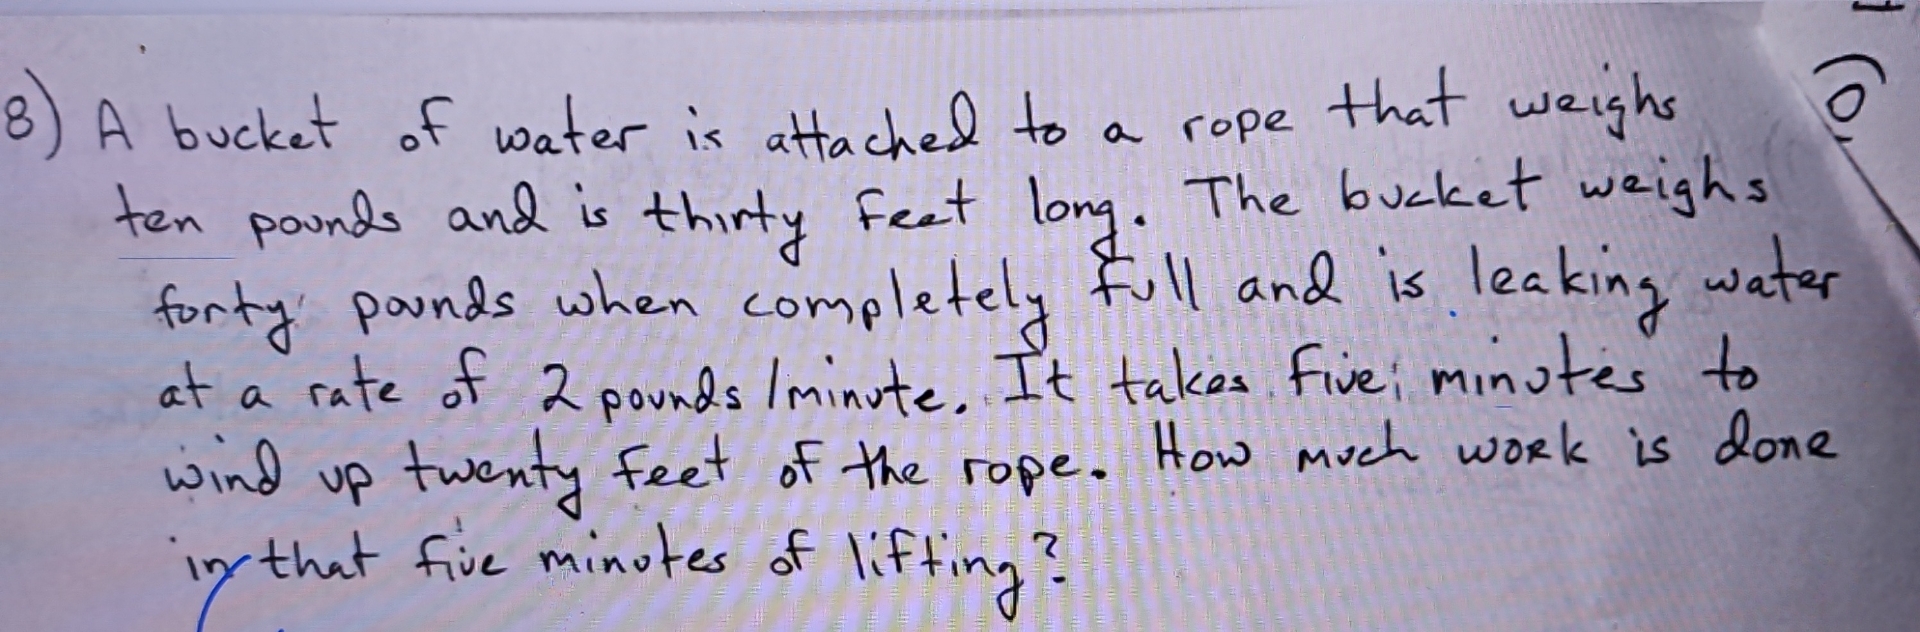 8) A bucket of water is attached to a rope that weighs
ten pounds and is thirty feet long. The bucket weighs
forty pounds when completely full and is leaking water
at a rate of 2 pounds/minute. It takes five minutes to
wind up twenty feet of the rope. How much work is done
in that five minutes of lifting?